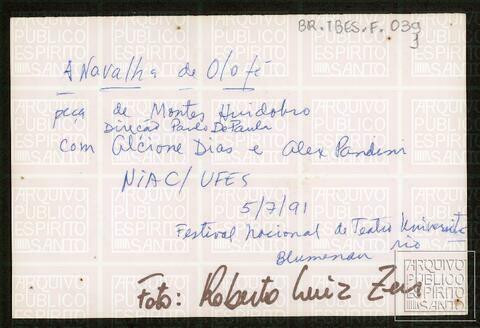 BR.TBES.F. 039
3
A Navalha de Olofé
peça de Montes Huidobro
Direção Paulo DePaula
com Alcione Dias e Alex Pandini
NIAC/UFES
5/7/91
Festival Nacional de Teatro Universitá
rio
Blumenau
Foto: Roberto Luiz
ARQUIVO
PÚBLICO
ESPÍRITO
SANTO